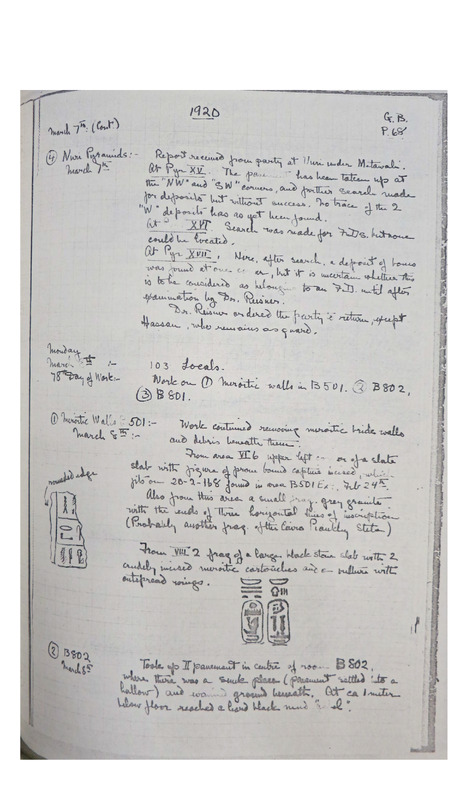 1920
G.B.
P. 68
March 7th. (Cont.)
④ Nuri Pyramids:-
March 7th
Report received from party at Nuri under Mitawali.
At Pyr. XV. The has been taken up at
the "NW" and "SW" corners, and further search made
for deposits but without success. No trace of the 2
"W" deposits has as yet been found.
At " XVI Search was made for F.D.s. but none
could be located.
At Pyr. XVII. Here, after search, a deposit of bones
was found at one, but it is uncertain whether this
is to be considered as to an F.D. until after
examination by Dr. Reisner.
Dr. Reisner ordered the party to return, except
Hassan, who remains as guard.
Monday
March :-
78th Day of Work:-
103 Locals.
Work on ① Meroitic walls in B 501. ② B 802,
③ B 801.
① Meroitic Walls 501:-
March 8th:-
Work continued removing meroitic bride walls
and debris beneath them:
From area VI 6 upper left :- of a slate
slab with figure of prone bound captive incised,
fits on 20-2-168 found in area B501 Ex: Feb 24th.
Also from this area a small frag. grey granite
with the ends of three horizontal lines of inscription
(Probably another frag. of the Cairo Piankhy Stela)
rounded edge
From VIII 2 frag of a larger black stone slab with 2
crudely incised meroitic cartouches and a vulture with
outspread wings.
② B 802
March 8th
Took up II pavement in centre of room B 802,
where there was a sunk place (pavement settled into a
hollow) and ground beneath. At ca 1 meter
below floor reached a hard black mud